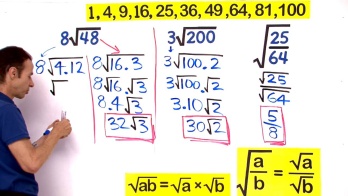 1, 4, 9, 16, 25, 36, 49, 64, 81, 100
8√48
8√4.12
√
8√16.3
8√16.√3
8.4√3
32√3
3√200
3√100.2
3√100.√2
3.10√2
30√2
√25/64
√25/√64
5/8
√ab = √a × √b
√a/b = √a/√b